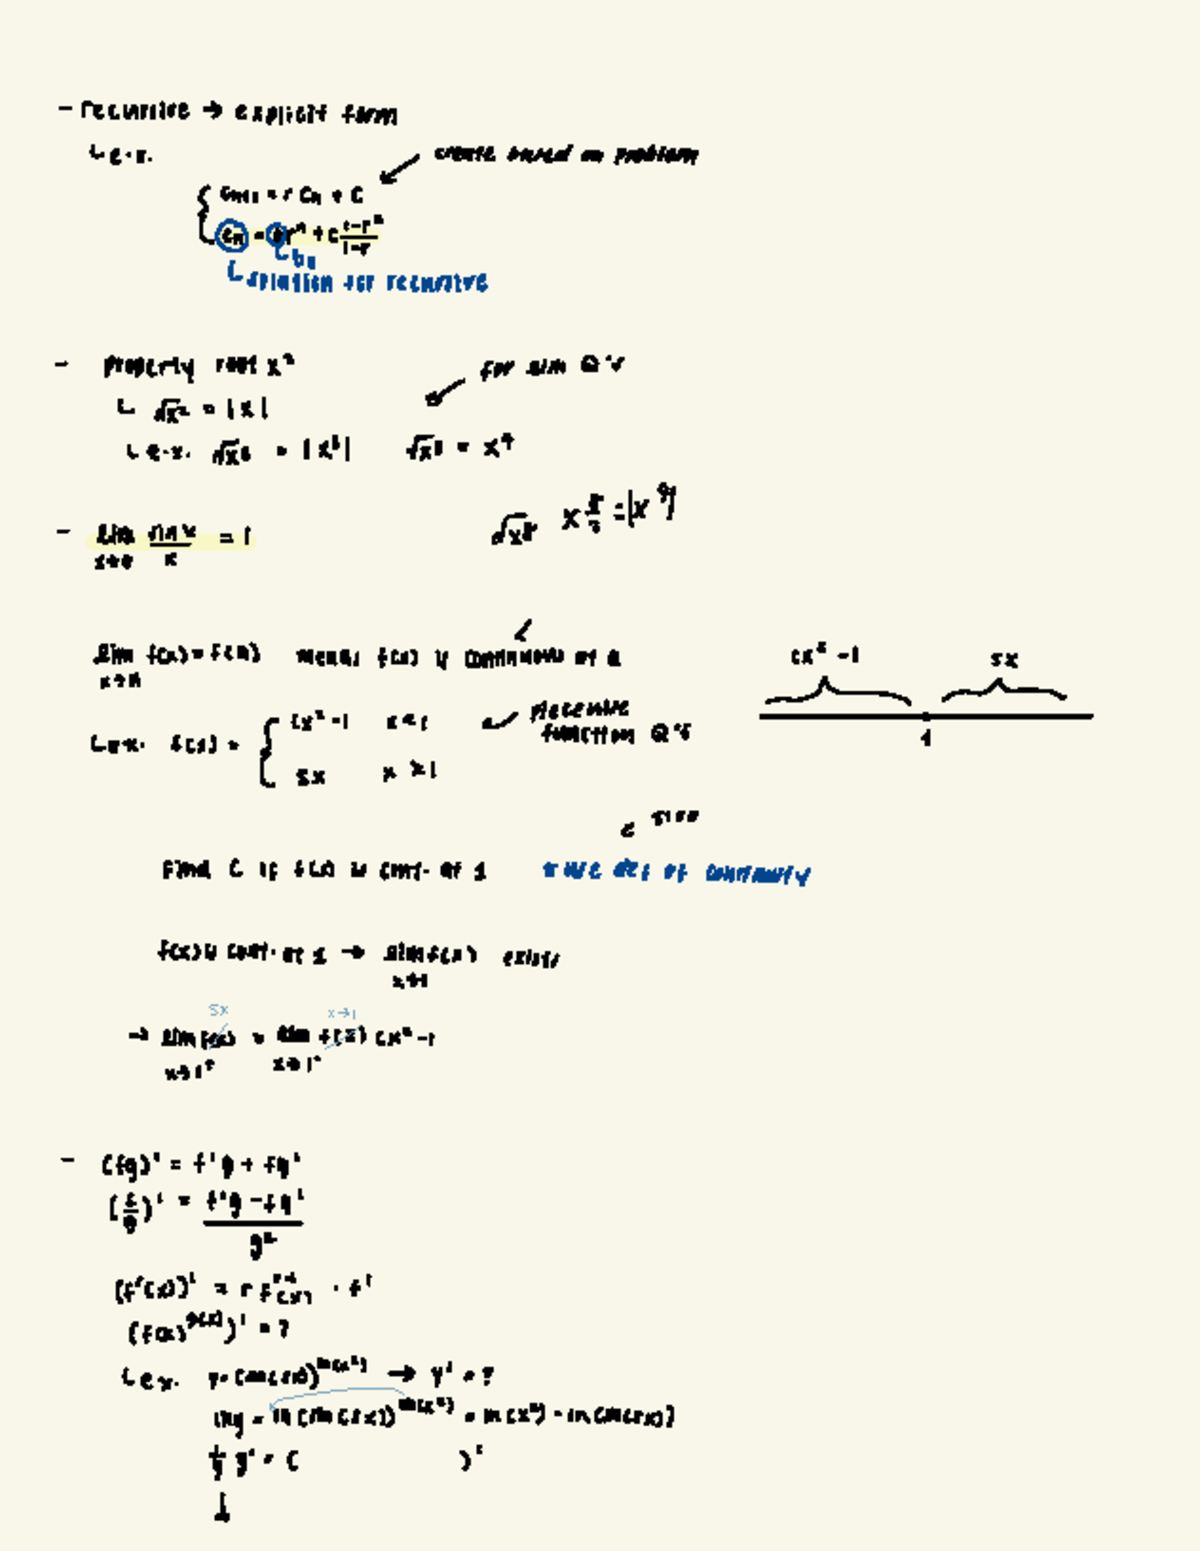 - recursive → explicit form
↳ e.x.
create based on problem
Cn+1 = r Cn + C
Cn = r^n + C (1-r^n)/(1-r)
↳ b0
↳ solution for recursive
- Property root x²
for lim Q's
↳ √x² = |x|
↳ e.x. √x⁶ = |x³| √x⁸ = x⁴
√x⁸ x^(8/2) = |x⁴|
- lim x→0 sin x / x = 1
lim x→a f(x) = f(a) means f(x) is continuous at a
cx² -1 5x
1
↳ ex. f(x) = { cx² -1 x<1
5x x ≥1
piecewise function Q's
Find C if f(x) is cont. at 1 * use def of continuity
f(x) is cont. at 1 → lim x→1 f(x) exists
5x x→1
→ lim x→1⁺ f(x) = lim x→1⁻ f(x) cx² -1
- (fg)' = f'g + fg'
(f/g)' = (f'g - fg')/g²
(f^r(x))' = r f^(r-1)(x) · f'
(f(x)^g(x))' = ?
↳ ex. y = (sin(5x))^ln(x²) → y' = ?
ln y = ln(sin(5x))^ln(x²) = ln(x²) · ln(sin(5x))
1/y y' = ( )'
↓